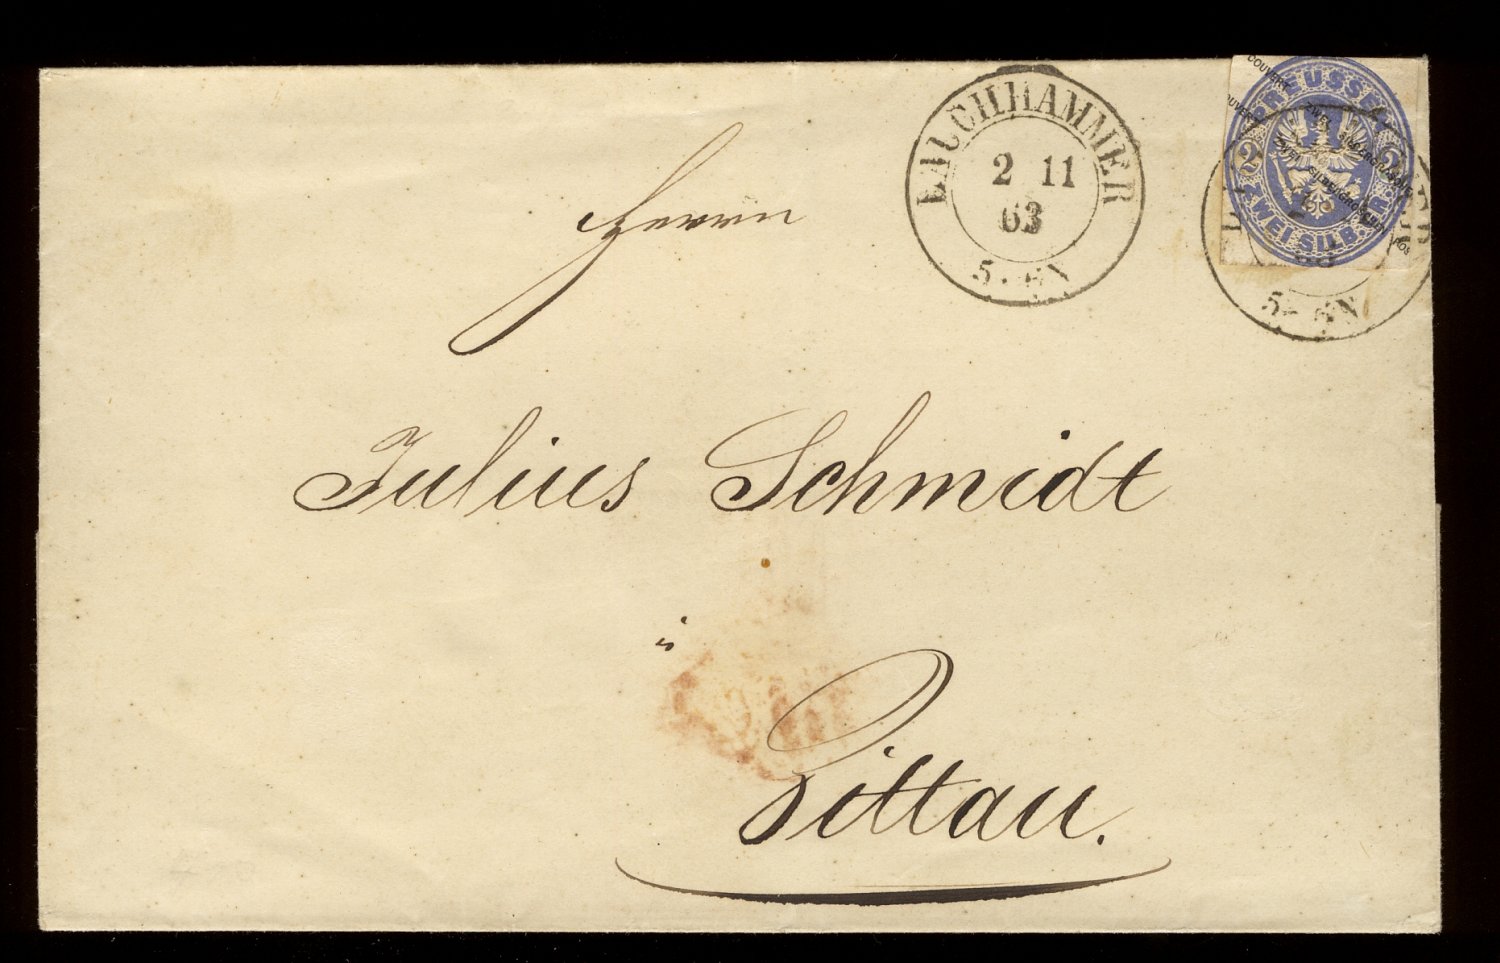 LAUCHHAMMER
2 11
63
5-6N
PREUSSEN
2 2
ZWEI SILB. GR.
5-6N
Herrn
Julius Schmidt
in
Zittau.